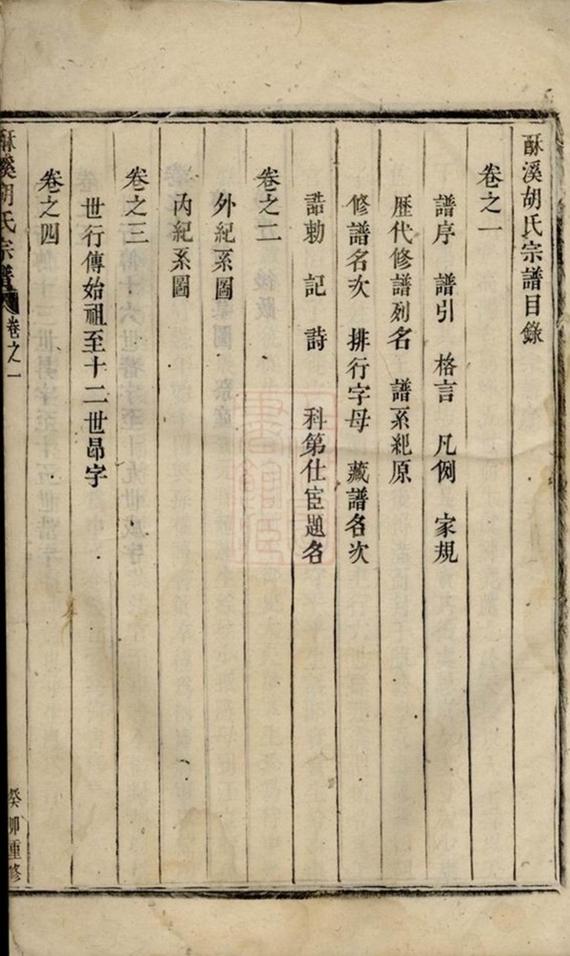 酥溪胡氏宗譜目錄
卷之一
譜序 譜引 格言 凡例 家規
歷代修譜列名 譜系紀原
修譜名次 排行字母 藏譜名次
誥勅 記 詩 科第仕宦題名
卷之二
外紀系圖
內紀系圖
卷之三
世行傳始祖至十二世昂字
卷之四
酥溪胡氏宗譜 卷之一 癸卯重修